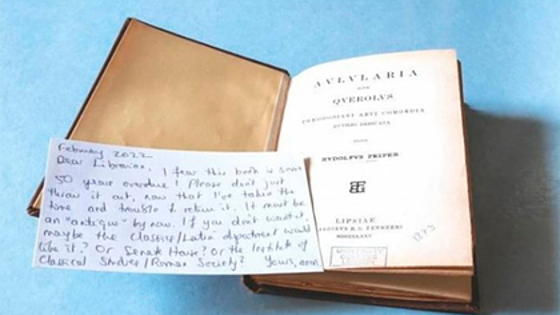 February 2022
Dear Librarian, I fear this book is some
50 years overdue! Please don't just
throw it out, now that I've taken the
time and trouble to return it. It must be
an "antique" by now. If you don't want it,
maybe the Classics/Latin department would
like it? Or Senate House? Or the Institute of
Classical Studies/Roman Society? Yours, anon
AVLVLARIA
SIVE
QVEROLVS
THEODOSIANI AEVI COMOEDIA
RVTILIO DEDICATA
EDIDIT
RVDOLFVS PEIPER
LIPSIAE
B. G. TEVBNERI
MDCCCLXXV
1875